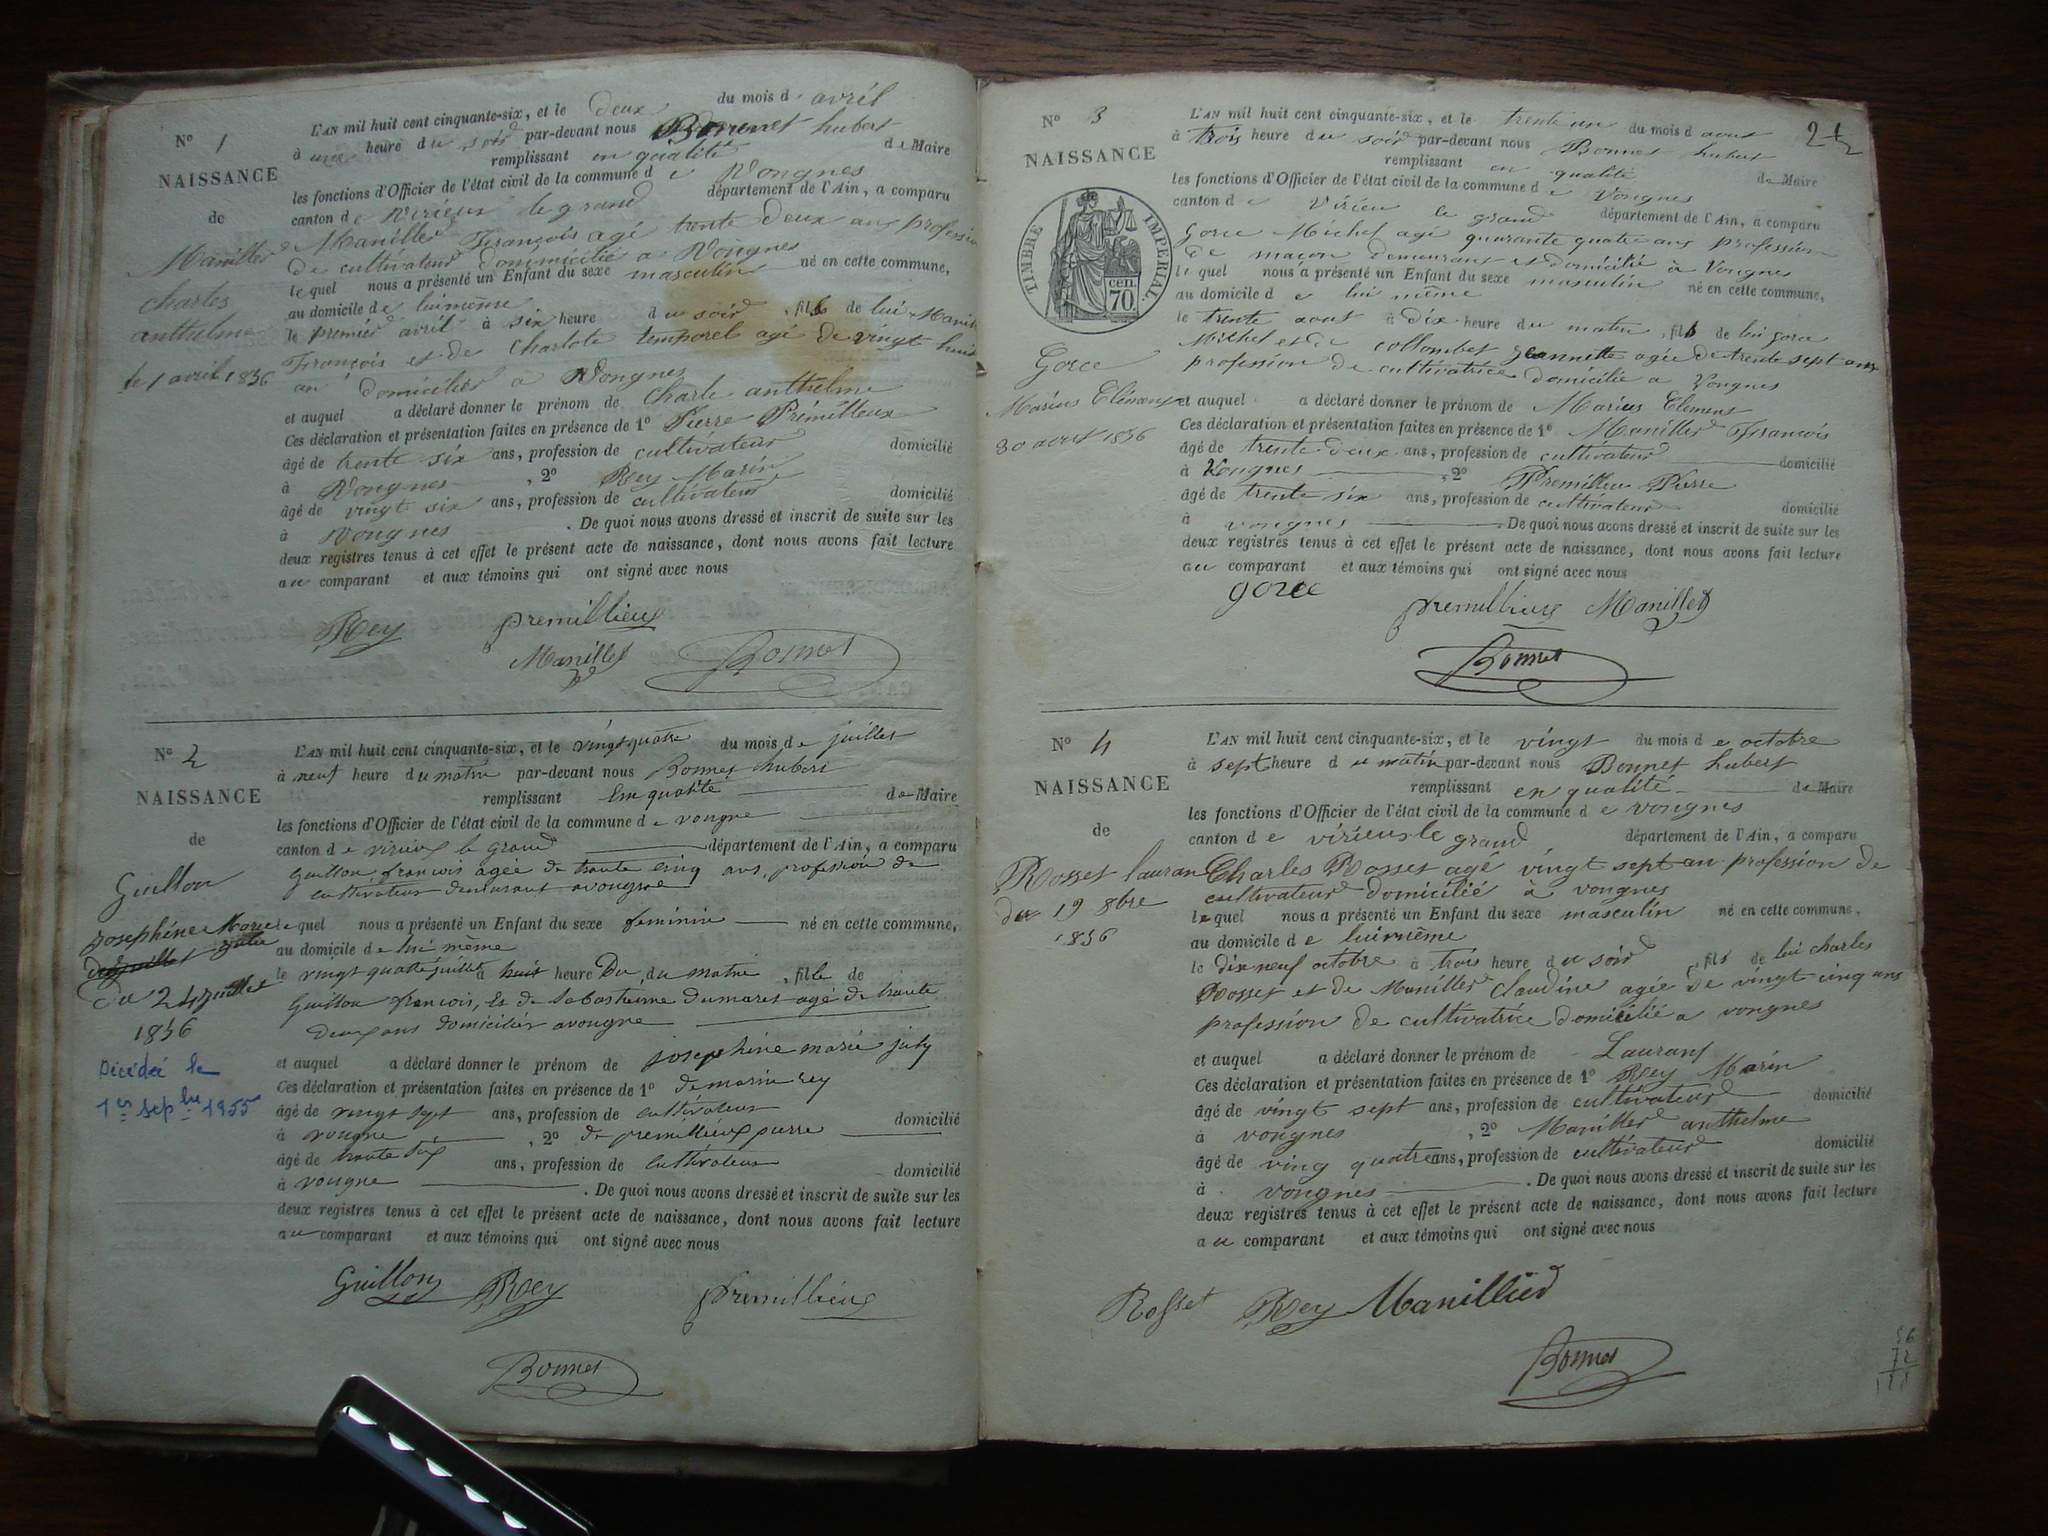 N° 1
NAISSANCE
de
Manillier
charles
anthelme
le 1 avril 1856
L'AN mil huit cent cinquante-six, et le deux du mois d avril
à une heure du soir par-devant nous Bonnet hubert
remplissant en qualité de Maire
les fonctions d'Officier de l'état civil de la commune de Vongnes
canton de Virieux le grand département de l'Ain, a comparu
Manillier François agé trente deux ans profession
de cultivateur domicilié a Vongnes
le quel nous a présenté un Enfant du sexe masculin né en cette commune,
au domicile de lui même
le premier avril à six heure du soir, fils de lui
François et de Charlote temporel agé de vingt huit
an domicilié a Vongnes
et auquel a déclaré donner le prénom de Charle anthelme
Ces déclaration et présentation faites en présence de 1° Pierre Prémillieux
âgé de trente six ans, profession de cultivateur domicilié
à Vongnes, 2° Rey Marin
âgé de vingt six ans, profession de cultivateur domicilié
à Vongnes. De quoi nous avons dressé et inscrit de suite sur les
deux registres tenus à cet effet le présent acte de naissance, dont nous avons fait lecture
au comparant et aux témoins qui ont signé avec nous
Rey premillieux
Manillier Bonnet
N° 2
NAISSANCE
de
Guillon
josephine Marie
julie
du 24 juillet
1856
Décédée le
1er sepbre 1955
L'AN mil huit cent cinquante-six, et le vingt quatre du mois de juillet
à neuf heure du matin par-devant nous Bonnet hubert
remplissant En qualité de Maire
les fonctions d'Officier de l'état civil de la commune de vongne
canton de virieux le grand département de l'Ain, a comparu
Guillon francois agée de trante cinq ans, profession de
cultivateur demeurant avongne
le quel nous a présenté un Enfant du sexe feminin né en cette commune,
au domicile de lui même
le vingt quatre juillet à huit heure Du du matin, fille de
Guillon francois, Et de Sabastienne dumaret agé de trante
deux ans domicilier avongne
et auquel a déclaré donner le prénom de josephine marie july
Ces déclaration et présentation faites en présence de 1° de marin rey
âgé de vingt sept ans, profession de cultivateur domicilié
à vongne, 2° de premillieux pierre
âgé de trante six ans, profession de cultivateur domicilié
à vongne. De quoi nous avons dressé et inscrit de suite sur les
deux registres tenus à cet effet le présent acte de naissance, dont nous avons fait lecture
au comparant et aux témoins qui ont signé avec nous
Guillon Rey Premillieux
Bonnet
N° 3
NAISSANCE
TIMBRE IMPERIAL.
cen.
70.
Gorce
Marius Clémant
30 aout 1856
L'AN mil huit cent cinquante-six, et le trente un du mois d aout
à trois heure du soir par-devant nous Bonnet hubert
remplissant en qualité de Maire
les fonctions d'Officier de l'état civil de la commune de Vongnes
canton de Virieu le grand département de l'Ain, a comparu
Gorce Michel agé quarante quatre ans profession
de maçon demeurant et domicilié à Vongnes
le quel nous a présenté un Enfant du sexe masculin né en cette commune,
au domicile de lui même
le trente aout à dix heure du matin, fils de lui gorce
Michel et de collombet jeannette agée de trente sept ans
profession de cultivatrice domicilié a Vongnes
et auquel a déclaré donner le prénom de Marius Clement
Ces déclaration et présentation faites en présence de 1° Manillier François
âgé de trente deux ans, profession de cultivateur domicilié
à Vongnes, 2° Premillieu Pierre
âgé de trente six ans, profession de cultivateur domicilié
à vongnes. De quoi nous avons dressé et inscrit de suite sur les
deux registres tenus à cet effet le présent acte de naissance, dont nous avons fait lecture
au comparant et aux témoins qui ont signé avec nous
gorce
premillieux Manillier
Bonnet
N° 4
NAISSANCE
de
Rosset Laurant
du 19 8bre
1856
L'AN mil huit cent cinquante-six, et le vingt du mois de octobre
à sept heure du matin par-devant nous Bonnet hubert
remplissant en qualité de Maire
les fonctions d'Officier de l'état civil de la commune de vongnes
canton de virieux le grand département de l'Ain, a comparu
Charles Rosset agé vingt sept an profession de
cultivateur domicilié à vongnes
le quel nous a présenté un Enfant du sexe masculin né en cette commune,
au domicile de lui même
le dix neuf octobre à trois heure du soir, fils de lui charles
Rosset et de Manillier Claudine agée de vingt cinq ans
profession de cultivatrice domicilié a vongnes
et auquel a déclaré donner le prénom de Laurant
Ces déclaration et présentation faites en présence de 1° Rey Marin
âgé de vingt sept ans, profession de cultivateur domicilié
à vongnes, 2° Manillier anthelme
âgé de ving quatre ans, profession de cultivateur domicilié
à vongnes. De quoi nous avons dressé et inscrit de suite sur les
deux registres tenus à cet effet le présent acte de naissance, dont nous avons fait lecture
au comparant et aux témoins qui ont signé avec nous
Rosset Rey Manillier
Bonnet